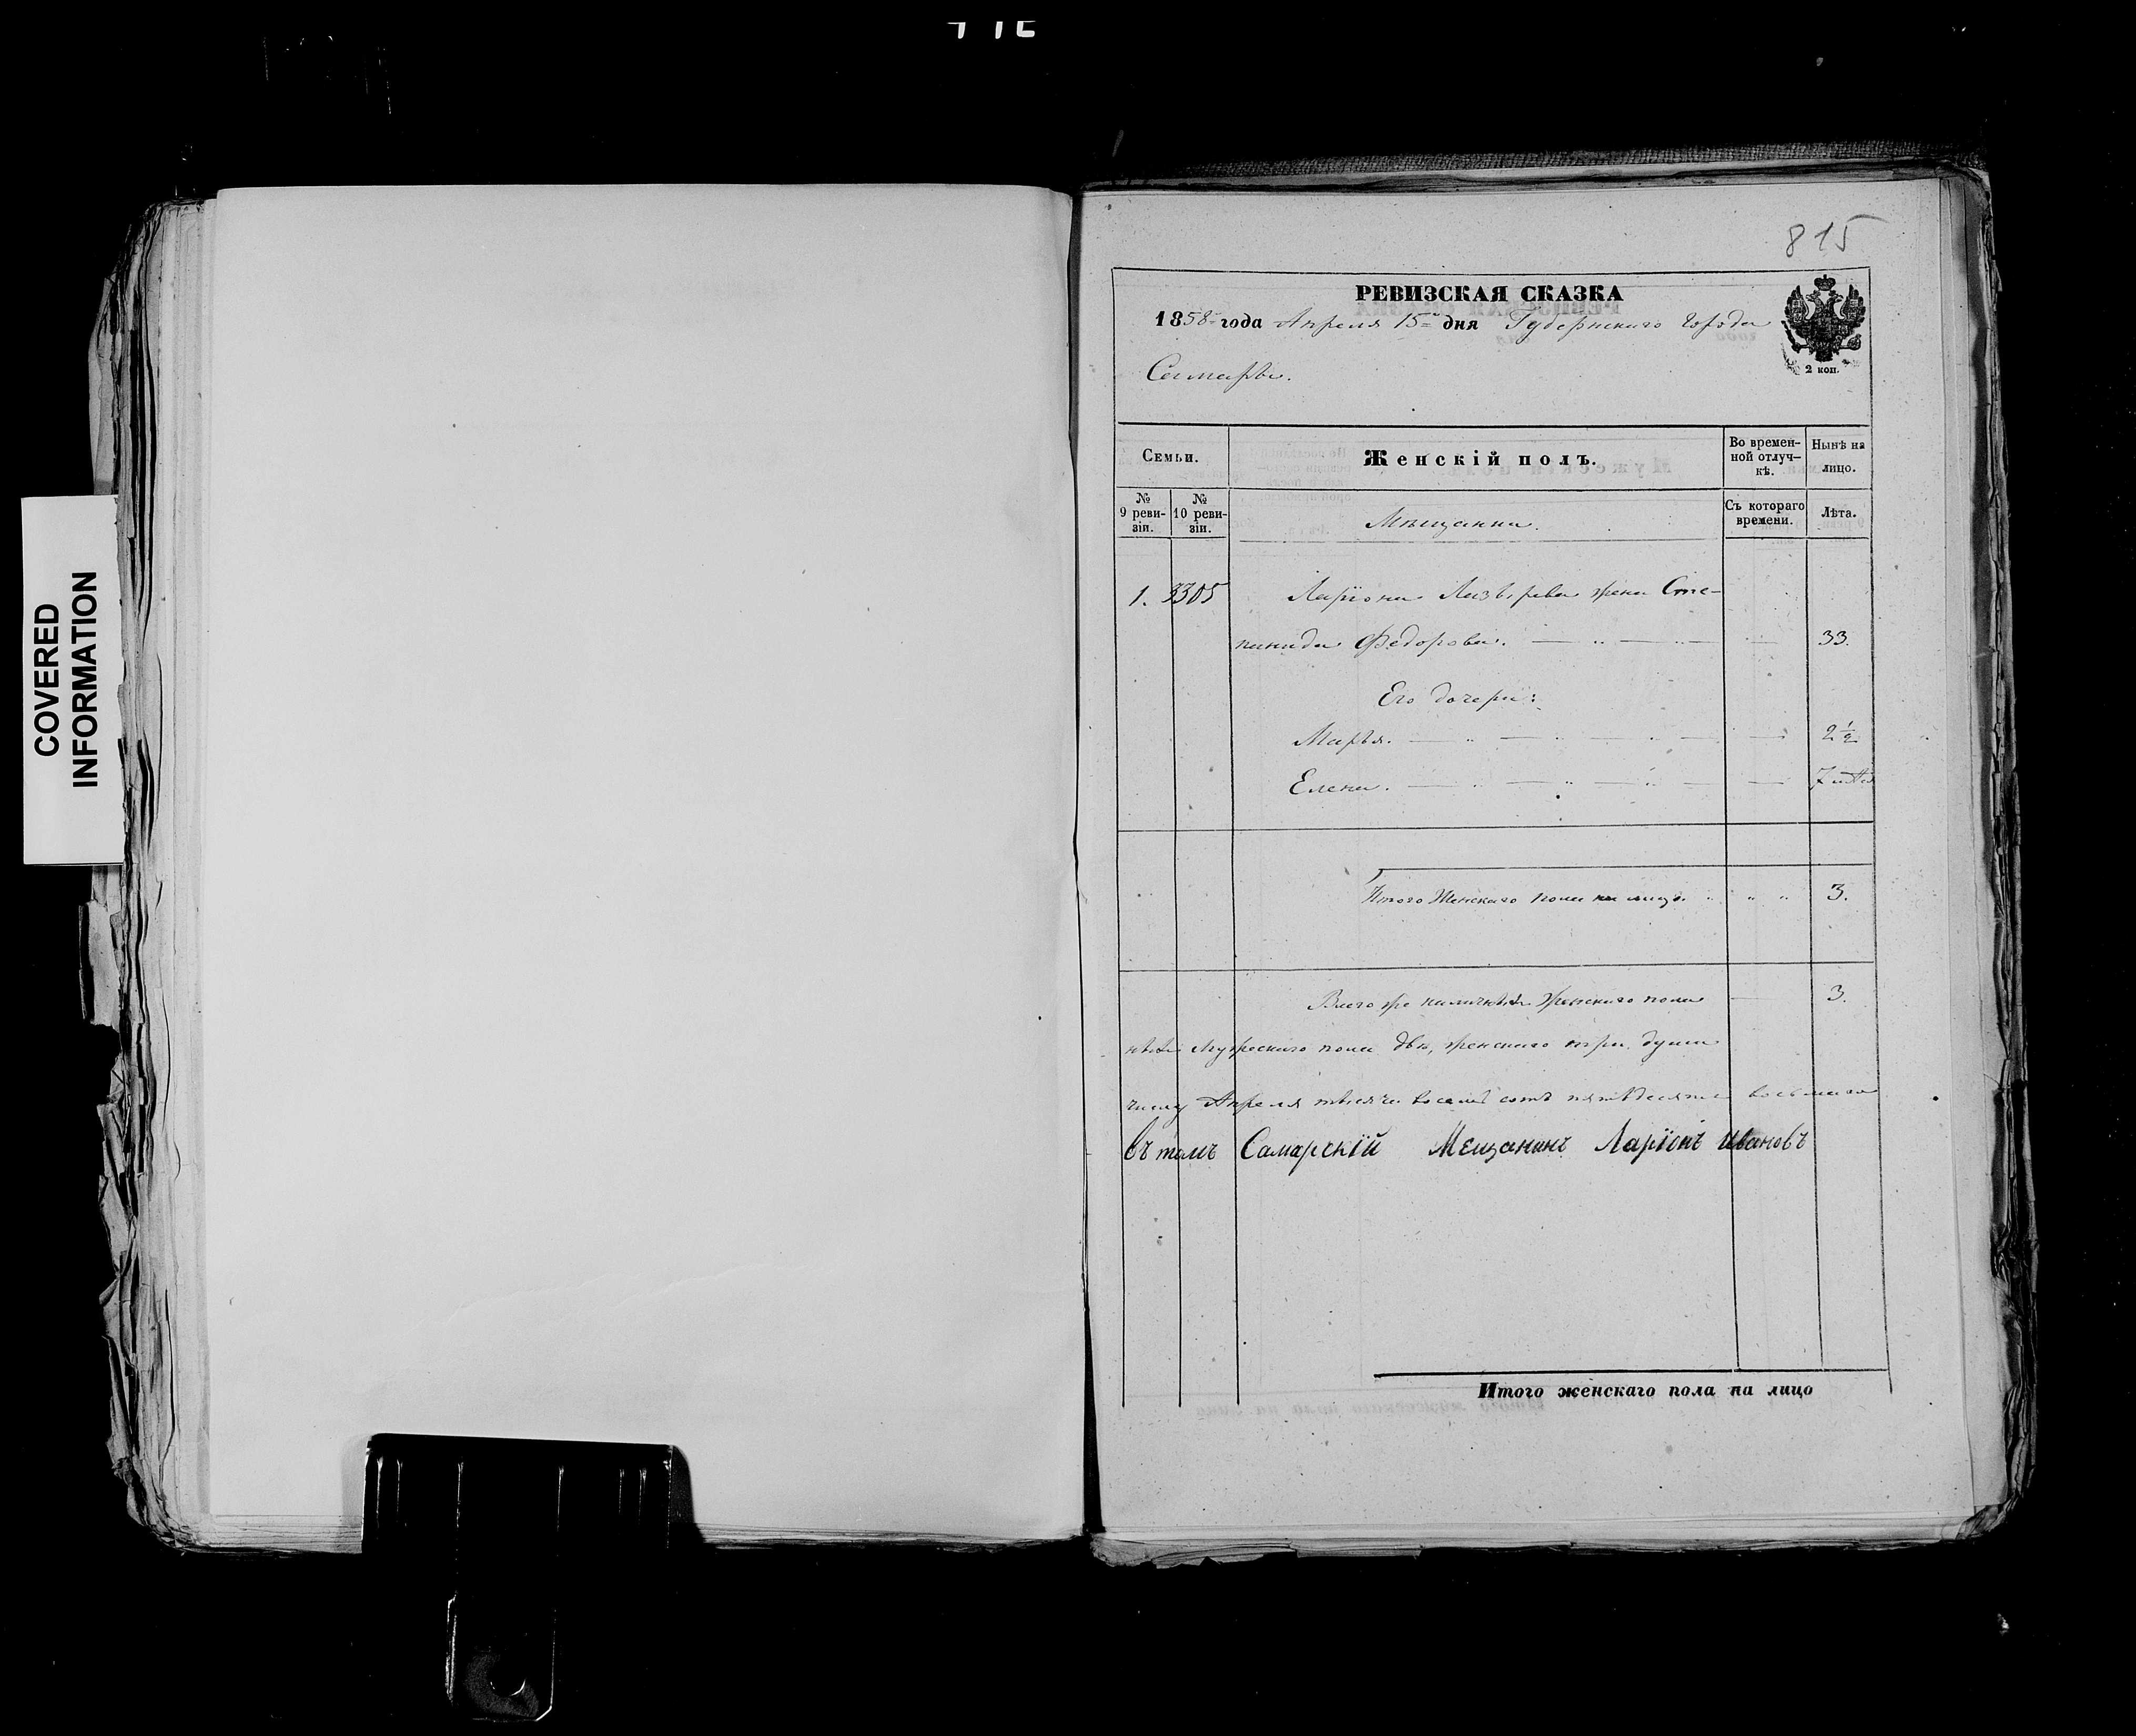 COVERED
INFORMATION
815
РЕВИЗСКАЯ СКАЗКА
1858 года Апреля 15 дня Губернскаго города
Самары.
2 коп.
Семьи. Женскій полъ. Во времен-
ной отлуч-
кѣ. Нынѣ на
лицо.
№
9 реви-
зіи. №
10 реви-
зіи. Мѣщанки. Съ котораго
времени. Лѣта.
1. 3305 Ларіона жена Сте-
панида Федорова. 33.
Его дочери:
Марья. 2½
Елена. 7
Итого женскаго пола на лицо. 3.
Всего же наличныхъ женскаго пола 3.
мужескаго пола двѣ, женскаго три души
числу Апреля тысяча восемь сотъ пятьдесятъ восьмаго
въ томъ Самарскїй Мещанинъ Ларїонъ Ивановъ
Итого женскаго пола на лицо